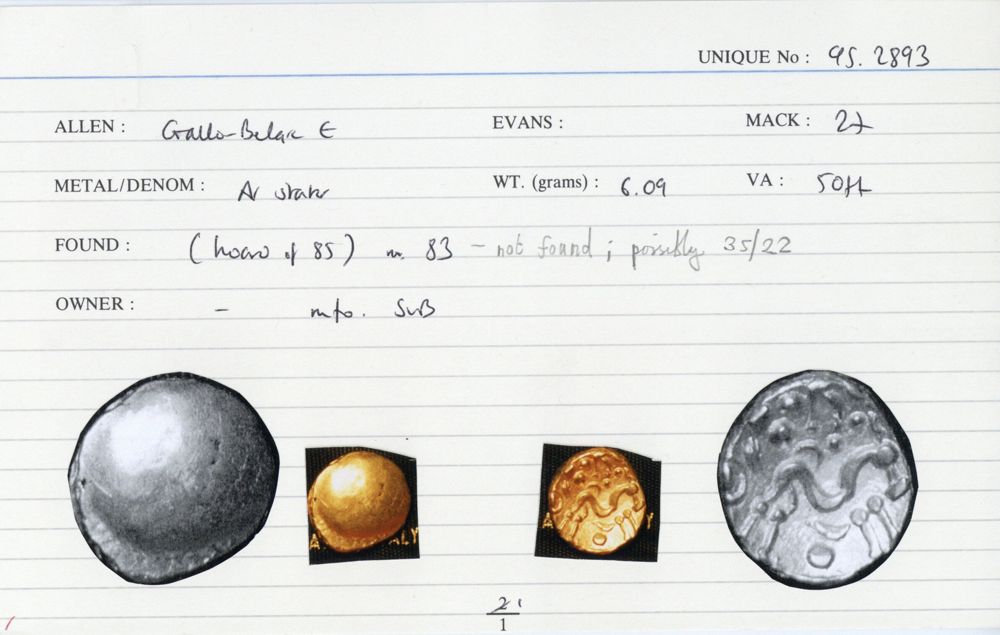 UNIQUE No : 95. 2893
ALLEN : Gallo-Belgic E EVANS : MACK : 27
METAL/DENOM : AV stater WT. (grams) : 6.09 VA :
FOUND : (hoard of 85) no. 83 – not found ; possibly 35/22
OWNER : – info. SvB
A ALY
A Y
21
1